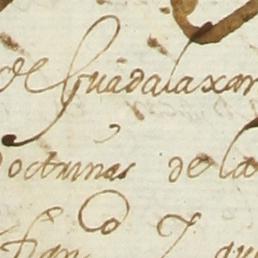 de Guadalaxar
Doctrinas de la
fran^co